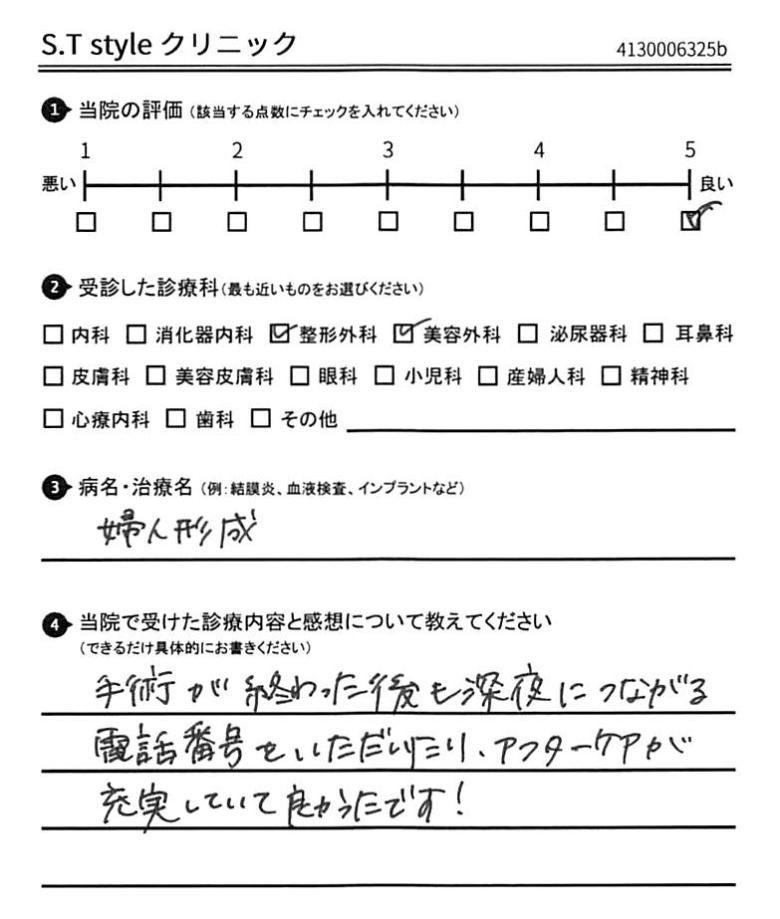 S.T style クリニック 4130006325b
1 当院の評価（該当する点数にチェックを入れてください）
1 2 3 4 5
悪い 良い
2 受診した診療科（最も近いものをお選びください）
□ 内科 □ 消化器内科 ☑ 整形外科 ☑ 美容外科 □ 泌尿器科 □ 耳鼻科
□ 皮膚科 □ 美容皮膚科 □ 眼科 □ 小児科 □ 産婦人科 □ 精神科
□ 心療内科 □ 歯科 □ その他
3 病名・治療名（例：結膜炎、血液検査、インプラントなど）
婦人形成
4 当院で受けた診療内容と感想について教えてください
（できるだけ具体的にお書きください）
手術が終わった後も深夜につながる
電話番号をいただいたり、アフターケアが
充実していて良かったです！